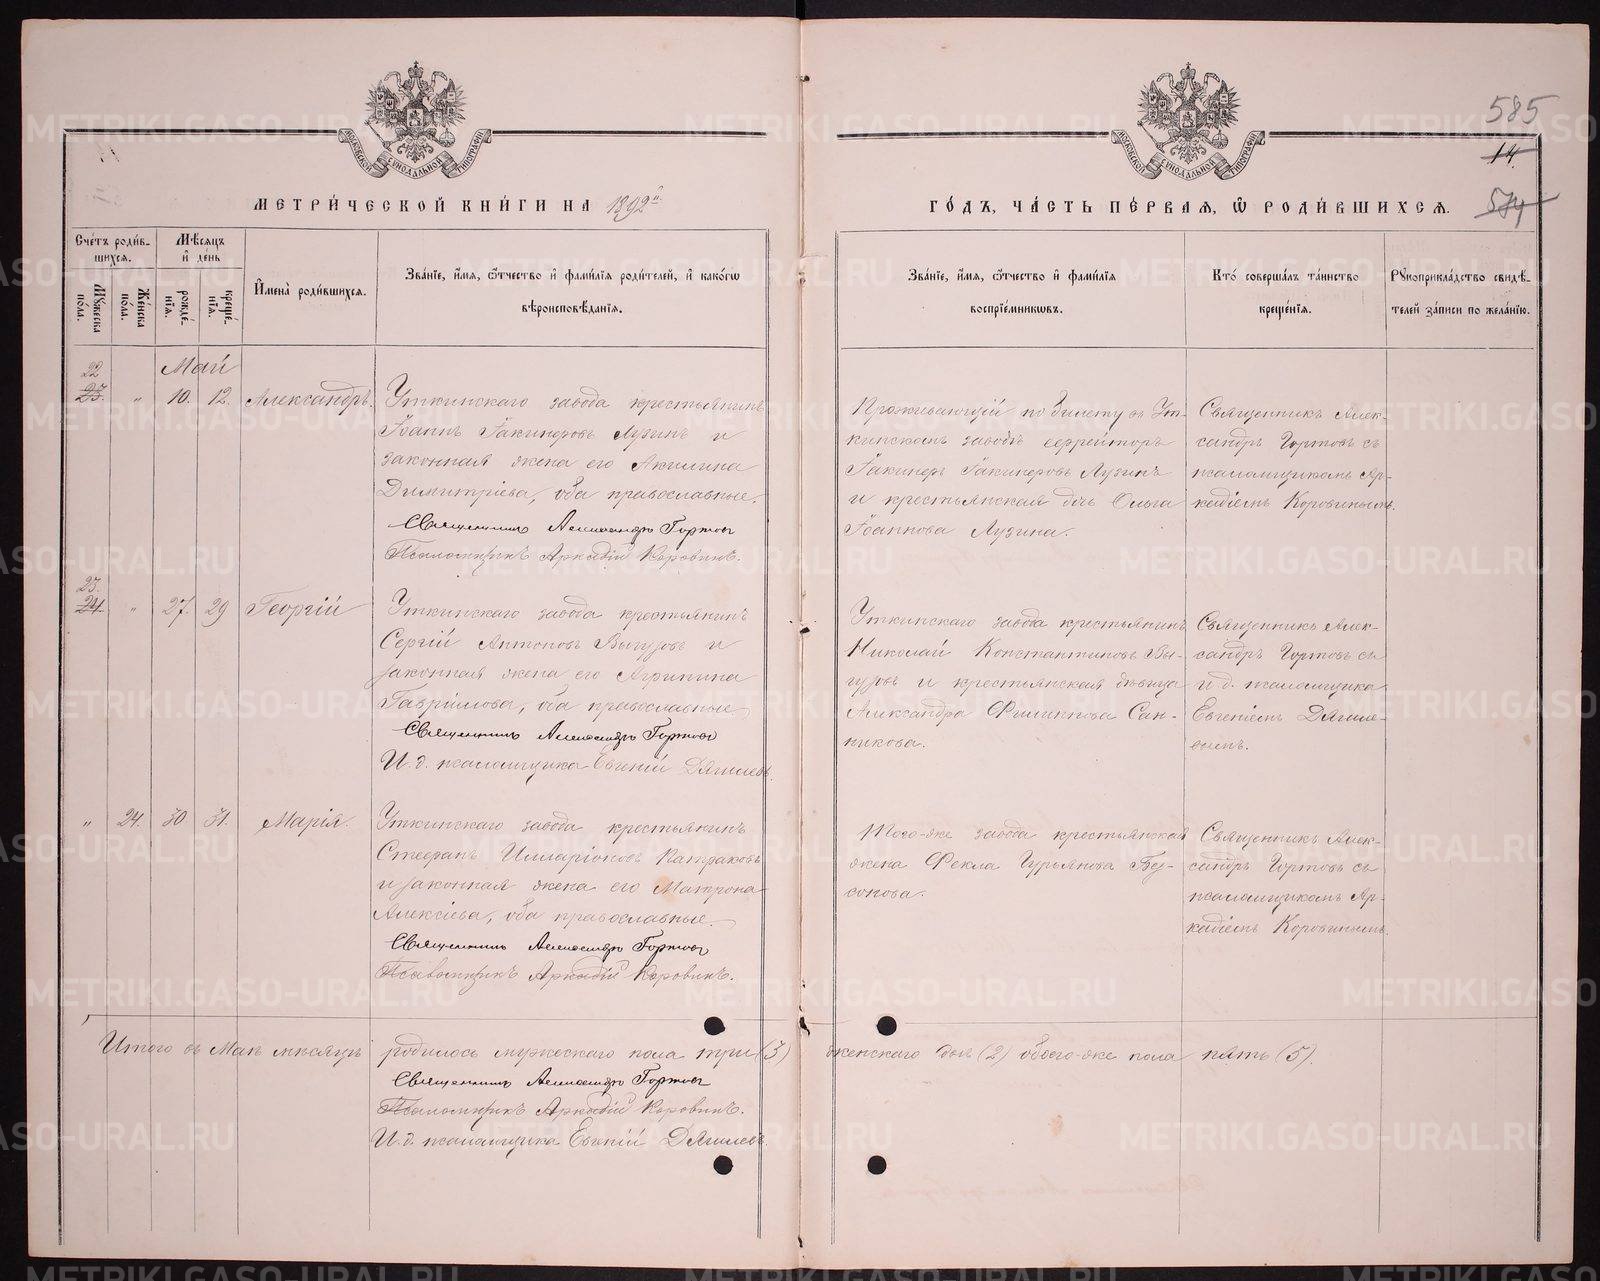 585
14
574
МОСКОВСКОЙ СѴНОДАЛЬНОЙ ТИПОГРАФІИ
МОСКОВСКОЙ СѴНОДАЛЬНОЙ ТИПОГРАФІИ
МЕТРИ́ЧЕСКОЙ КНИ́ГИ НА 1892 й.
ГО́ДЪ, ЧА́СТЬ ПЕ́РВАЯ, Ѽ РОДИ́ВШИХСЯ.
Сче́тъ роди́в-
шихся.
Мꙋ́жеска
по́ла.
Же́нска
по́ла.
Мѣ́сяцъ
и҆ де́нь
рожде́-
нїя.
креще́-
нїя.
И҆мена̀ роди́вшихся.
Зва́нїе, и҆́мя, ѻ҆́тчество и҆ фами́лїя роди́телей, и҆ како́гѡ
вѣроисповѣ́данїя.
Зва́нїе, и҆́мя, ѻ҆́тчество и҆ фами́лїя
воспрїе́мниковъ.
Кто̀ соверша́лъ та́инство
креще́нїя.
Рꙋкоприкла́дство свидѣ́-
телей за́писи по жела́нїю.
Май
22
23. " 10. 12. Александръ.
Уткинскаго завода крестьянинъ
Іоаннъ Іакинѳовъ Лузинъ и
законная жена его Акилина
Димитріева, оба православные.
Священникъ Александръ Гортовъ
Псаломщикъ Аркадій Коровинъ.
Проживающій по билету въ Ут-
кинскомъ заводѣ ефрейторъ
Іакинѳъ Іакинѳовъ Лузинъ
и крестьянская дочь Ольга
Іоаннова Лузина.
Священникъ Алек-
сандръ Гортовъ съ
псаломщикомъ Ар-
кадіемъ Коровинымъ.
23.
24. " 27. 29 Георгій
Уткинскаго завода крестьянинъ
Сергій Антоновъ Выгузовъ и
законная жена его Агрипина
Гавріилова, оба православные
Священникъ Александръ Гортовъ
И. д. псаломщика Евгеній Дягилевъ.
Уткинскаго завода крестьянинъ
Николай Константиновъ Вы-
гузовъ и крестьянская дѣвица
Александра Филиппова Сан-
никова.
Священникъ Алек-
сандръ Гортовъ съ
и. д. псаломщика
Евгеніемъ Дягиле-
вымъ.
" 24. 30 31. Марія.
Уткинскаго завода крестьянинъ
Стефанъ Илларіоновъ Катраковъ
и законная жена его Матрона
Алексіева, оба православные
Священникъ Александръ Гортовъ
Псаломщикъ Аркадій Коровинъ.
Того-же завода крестьянская
жена Фекла Гурьянова Бу-
сонова.
Священникъ Алек-
сандръ Гортовъ съ
псаломщикомъ Ар-
кадіемъ Коровинымъ.
Итого въ Маѣ мѣсяцѣ родилось мужескаго пола три (3) женскаго двѣ (2) обоего-же пола пять (5).
Священникъ Александръ Гортовъ
Псаломщикъ Аркадій Коровинъ.
И. д. псаломщика Евгеній Дягилевъ
METRIKI.GASO-URAL.RU